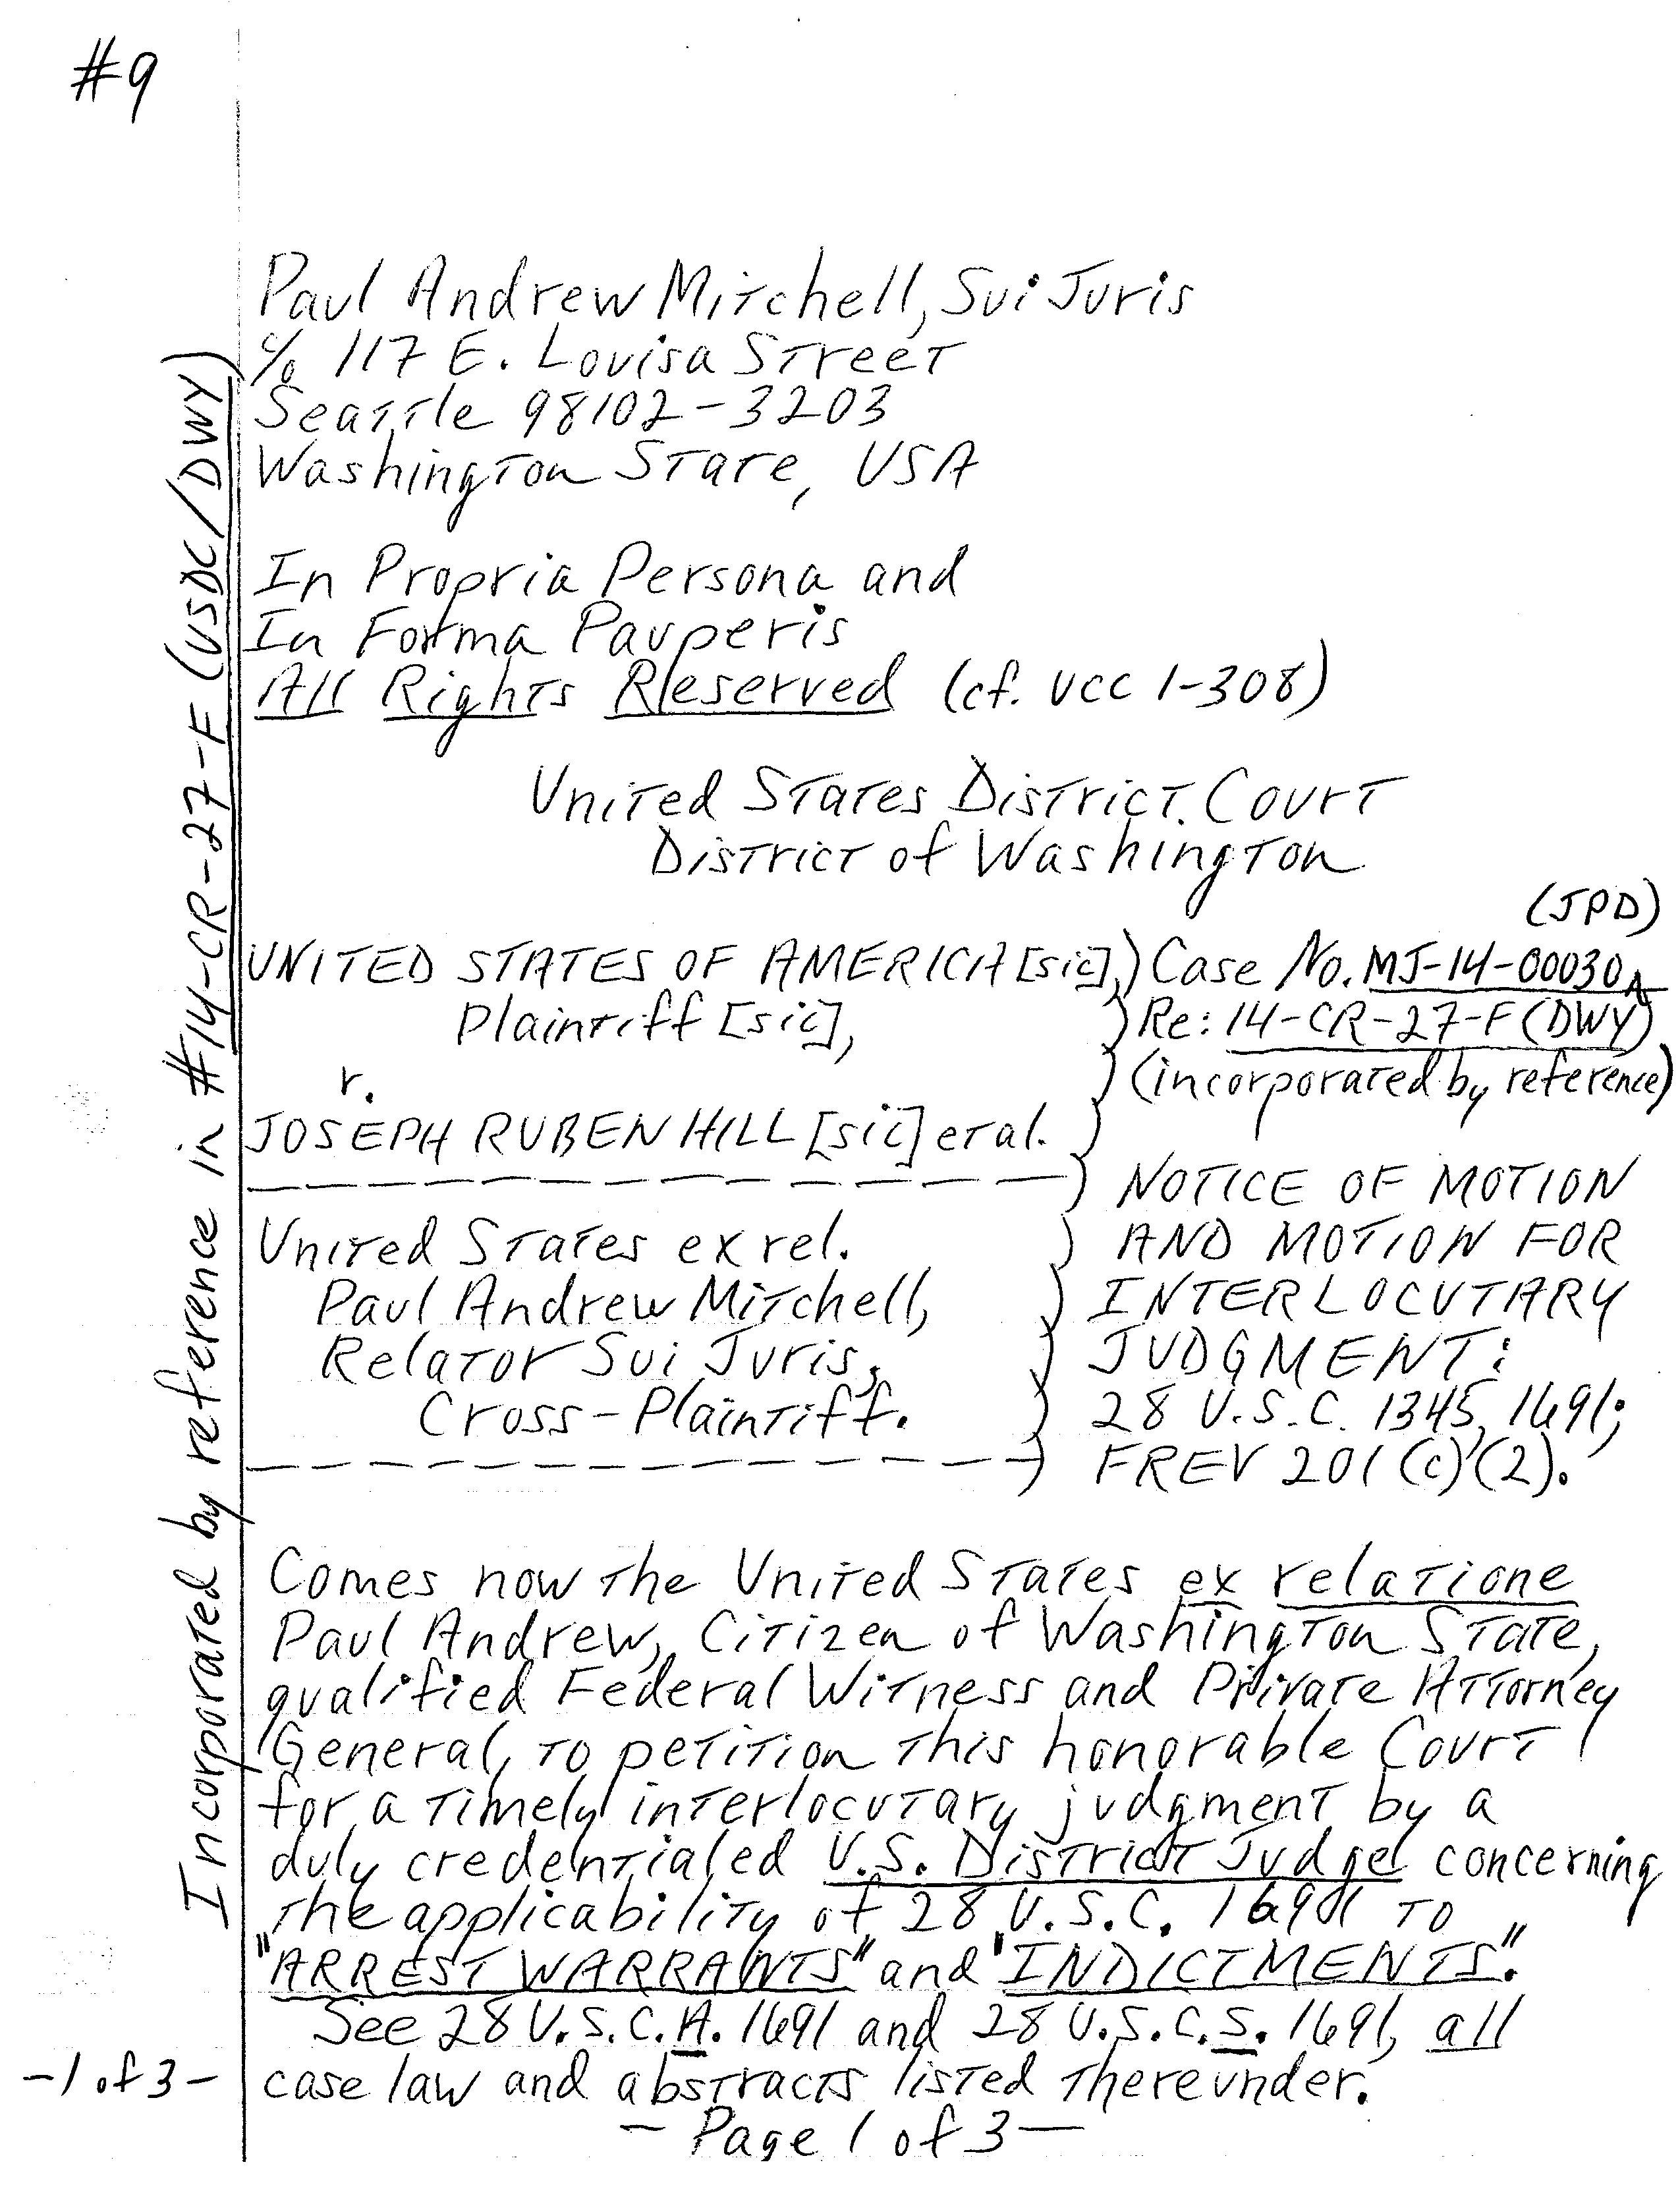 #9
Incorporated by reference in #14-CR-27-F (USDC/DWY)
Paul Andrew Mitchell, Sui Juris
c/o 117 E. Louisa Street
Seattle 98102-3203
Washington State, USA
In Propria Persona and
In Forma Pauperis
All Rights Reserved (cf. UCC 1-308)
United States District Court
District of Washington
(JPD)
UNITED STATES OF AMERICA [sic],) Case No. MJ-14-00030
Plaintiff [sic], ) Re: 14-CR-27-F (DWY)
v. ) (incorporated by reference)
JOSEPH RUBEN HILL [sic] et al. )
---------------) NOTICE OF MOTION
United States ex rel. ) AND MOTION FOR
Paul Andrew Mitchell, ) INTERLOCUTARY
Relator Sui Juris, ) JUDGMENT:
Cross-Plaintiff. ) 28 U.S.C. 1345, 1691;
---------------) FREV 201(c)(2).
Comes now the United States ex relatione
Paul Andrew, Citizen of Washington State,
qualified Federal Witness and Private Attorney
General, to petition this honorable Court
for a timely interlocutary judgment by a
duly credentialed U.S. District Judge concerning
the applicability of 28 U.S.C. 1691 to
"ARREST WARRANTS" and "INDICTMENTS".
See 28 U.S.C.A. 1691 and 28 U.S.C.S. 1691, all
case law and abstracts listed thereunder.
-1 of 3-
- Page 1 of 3 -